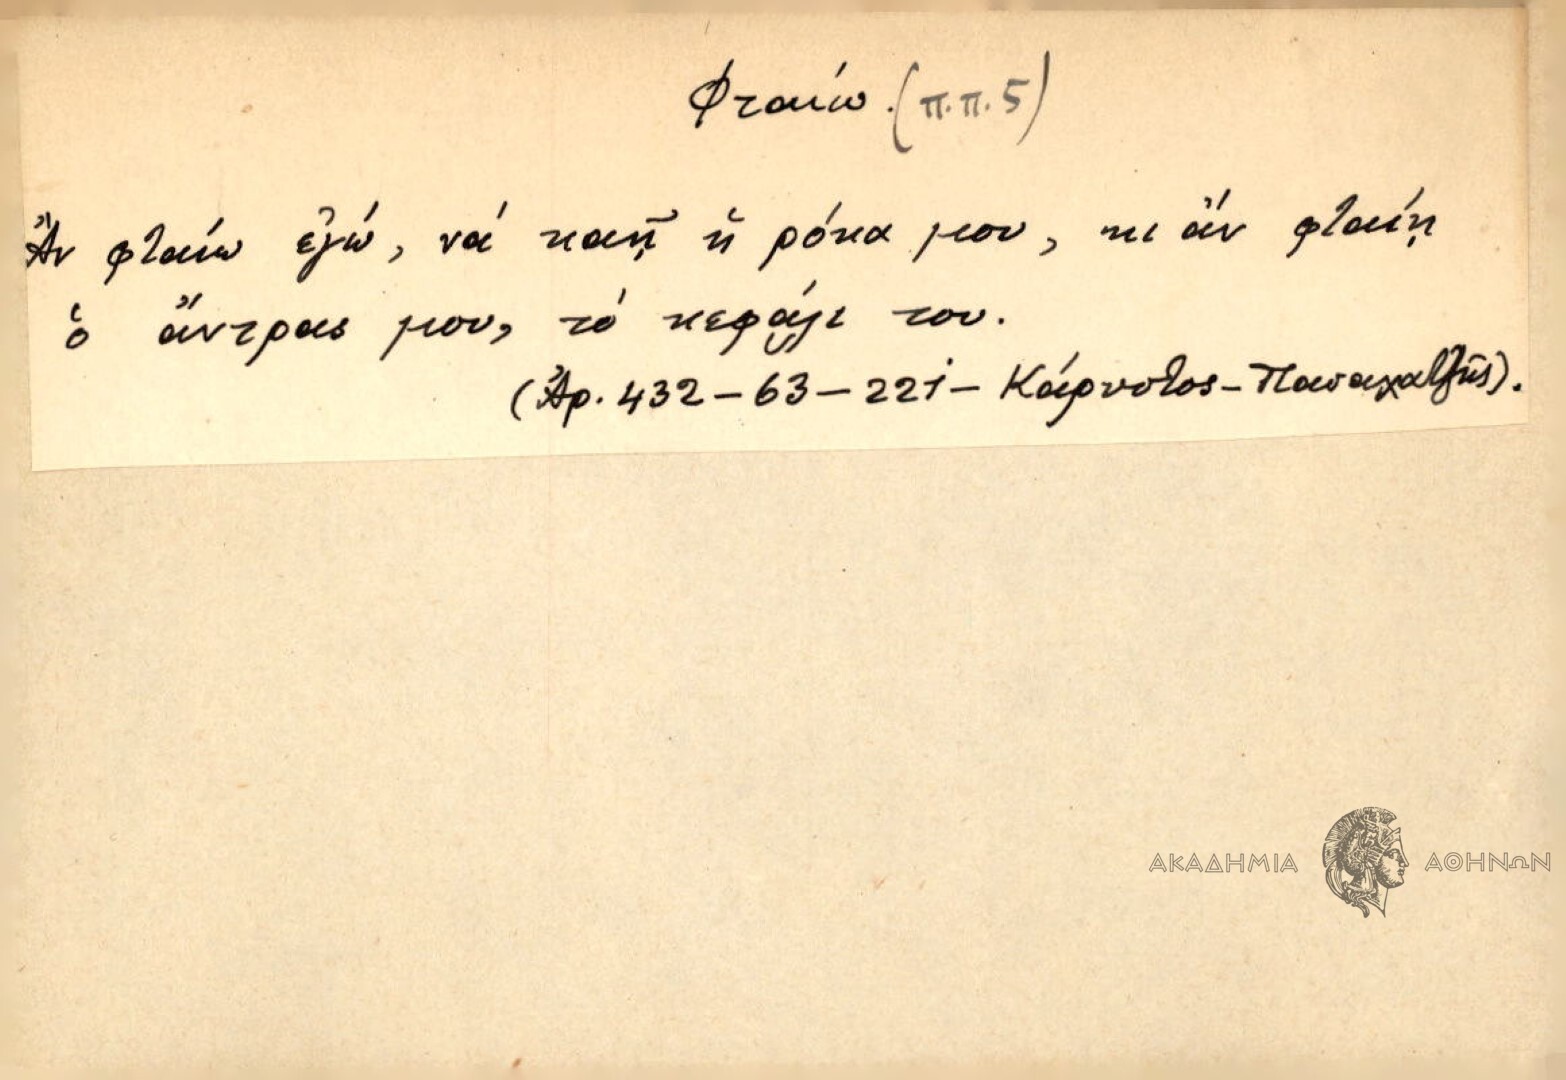 Φταίω. (π.π. 5)
Ἄν φταίω ἐγώ, νά καῇ ἡ ρόκα μου, κι ἄν φταίῃ
ὁ ἄντρας μου, τό κεφάλι του.
(Ἀρ. 432 – 63 – 221 – Κάρυστος – Παπαχατζῆς).
ΑΚΑΔΗΜΙΑ ΑΘΗΝΩΝ